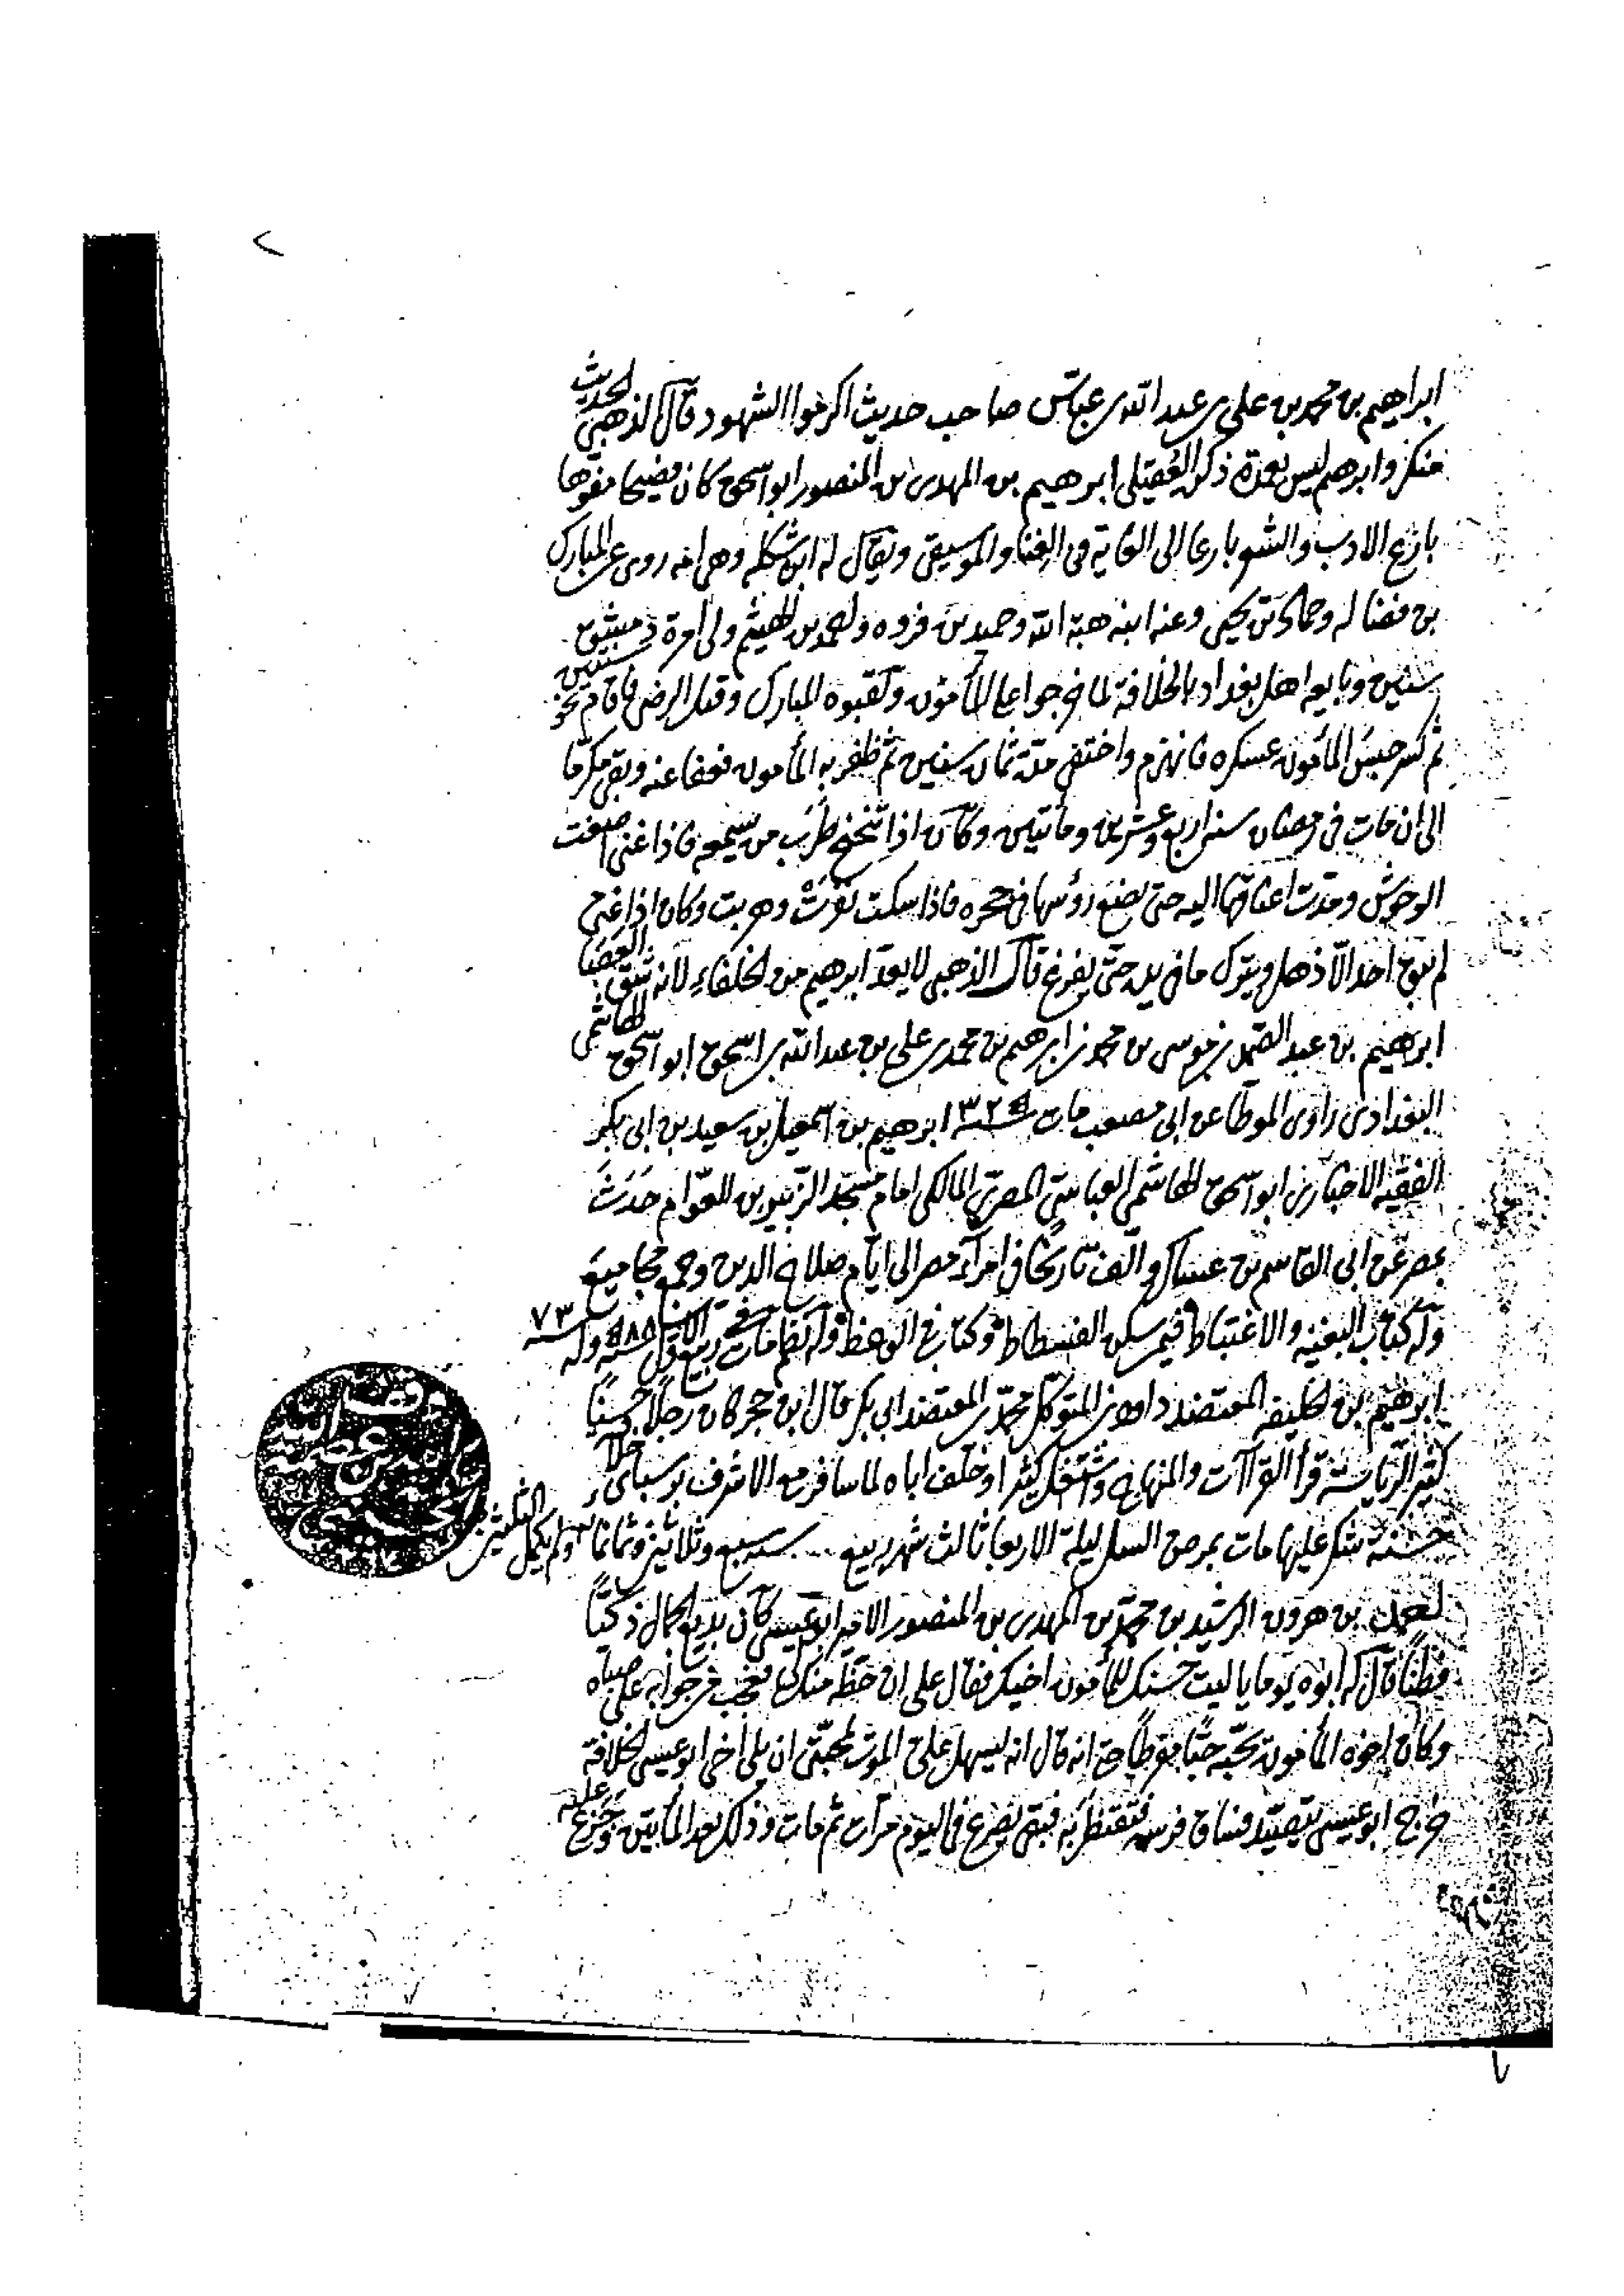 ابراهيم بن محمد بن علي بن عبد الله بن عباس صاحب حديث اكرموا الشهود قال الذهبي الحديث
منكر وابرهيم ليس بعمدة ذكره العقيلي ابرهيم بن المهدي بن المنصور ابو اسحق كان فصيحا مفوها
بارع الادب والشعر بارعا الى الغاية في الغنا والموسيقى ويقال له ابن شكله وهي امه روى عن المبارك
بن فضاله وحماد بن يحيى وعنه ابنه هبة الله وحميد بن فروه واحمد بن الهيثم ولي امرة دمشق
سنين وبايعه اهل بغداد بالخلافة لما خرجوا على المأمون ولقبوه المبارك وقيل الرضى فاقام نحو سنتين
ثم كسر جيش المأمون عسكره فانهزم واختفى مدة ثمان سنين ثم ظفر به المأمون فعفا عنه وبقي مكرما
الى ان مات في رمضان سنة اربع وعشرين ومائتين وكان اذا تنحنح طرب من يسمعه فاذا غنى اصغت
الوحوش ومدت اعناقها اليه حتى تضع رؤسها في حجره فاذا سكت نفرت وهربت وكان اذا غنى
لم يبق احد الا ذهل ويترك ما في يده حتى يفرغ قال الذهبي لا يعد ابرهيم من الخلفاء لانه شق العصا
ابرهيم بن عبد الصمد بن موسى بن محمد بن ابرهيم بن محمد بن علي بن عبد الله بن اسحق ابو اسحق الهاشمي
البغدادي راوي الموطأ عن ابي مصعب مات سنة ٣٢٥ ابرهيم بن اسمعيل بن سعيد بن ابي بكر
الفقيه الاخباري ابو اسحق الهاشمي العباسي المصري المالكي امام مسجد الزبير بن العوام حدث
بمصر عن ابي القاسم بن عساكر والف تاريخا في امراء مصر الى ايام صلاح الدين وجمع مجاميع
وله كتاب البغية والاغتباط فيمن سكن الفسطاط وكتاب في الوعظ وله نظم مات في ربيع الاول سنة ٥٨٨ وله ٧٣ سنة
ابرهيم بن الخليفه المعتضد داود بن المتوكل محمد بن المعتضد ابي بكر قال ابن حجر كان رجلا حسنا
كثير الرياسة قرأ القراآت والمنهاج واشتغل كثيرا وخلف اباه لما سافر مع الاشرف برسباي خلافة
حسنة شكر عليها مات بمرض السل ليلة الاربعا ثالث شهر ربيع ... سنة سبع وثلاثين وثمانمائة ولم يكمل الثلاثين
احمد بن هرون الرشيد بن محمد بن المهدي بن المنصور الامير ابو عيسى كان بديع الجمال ذكيا
فطنا قال له ابوه يوما يا ليت حسنك للمأمون اخيك فقال على ان حظه منك لي فعجب من جوابه على صباه
وكان اخوه المأمون يحبه حبا مفرطا حتى انه قال انه ليسهل علي الموت لمحبتي ان يلي اخي ابو عيسى الخلافة
خرج ابو عيسى يتصيد فساق فرسه فتقنطر به فبقي يصرع في اليوم مرات ثم مات وذلك بعد المأتين وجزع عليه